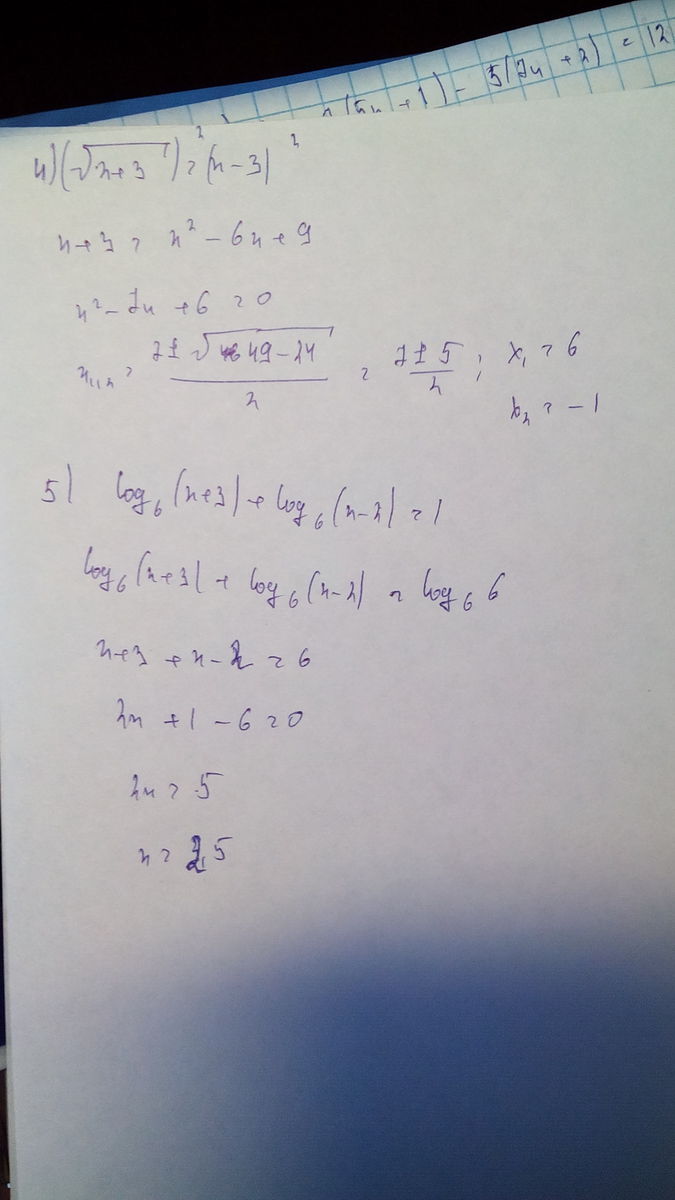 5(7x + 2) = 12
4) (√x+3)² = (x-3)²
x+3 = x² - 6x + 9
x² - 7x + 6 = 0
x₁,₂ = 7±√49-24 / 2 = 7±5 / 2 ; x₁ = 6
x₂ = -1
5) log₆(x+3) + log₆(x-2) = 1
log₆(x+3) + log₆(x-2) = log₆ 6
x+3 + x-2 = 6
2x + 1 - 6 = 0
2x = 5
x = 2,5